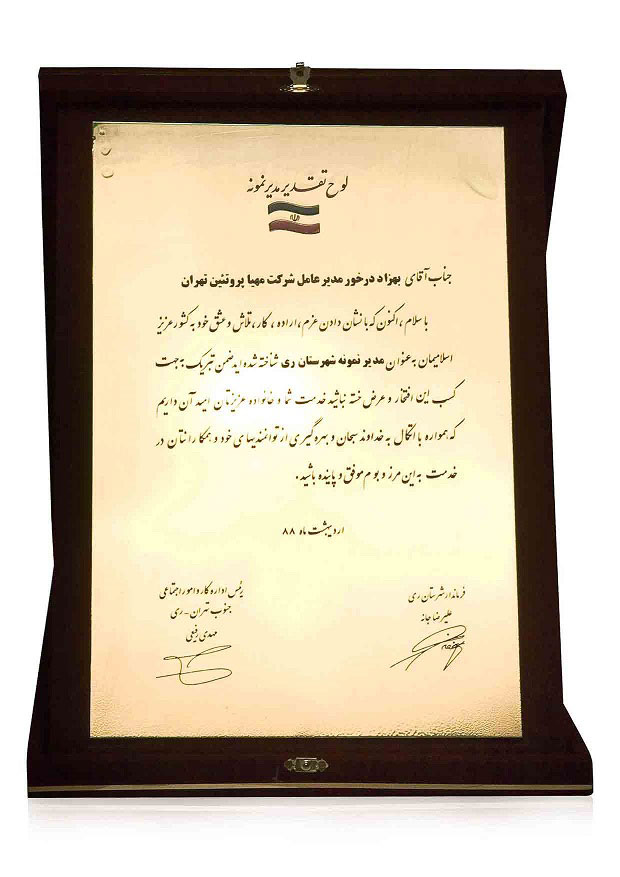 لوح تقدیر مدیر نمونه
جناب آقای بهزاد درخور مدیر عامل شرکت مهیا پروتئین تهران
با سلام ، اکنون که با نشان دادن عزم ، اراده ، کار ، تلاش و عشق خود به کشور عزیز
اسلامیمان به عنوان مدیر نمونه شهرستان ری شناخته شده اید ضمن تبریک به جهت
کسب این افتخار و عرض خسته نباشید خدمت شما و خانواده عزیزتان امید آن داریم
که همواره با اتکال به خداوند سبحان و بهره گیری از توانمندیهای خود و همکارانتان در
خدمت به این مرز و بوم موفق و پاینده باشید .
اردیبهشت ماه ۸۸
فرماندار شهرستان ری
علیرضا جانه
رئیس اداره کار و امور اجتماعی
جنوب تهران - ری
مهدی رفیعی